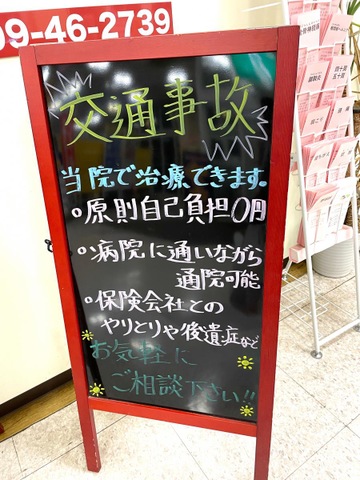 09-46-2739
交通事故
当院で治療できます。
○原則自己負担0円
○病院に通いながら
通院可能
○保険会社との
やりとりや後遺症など
お気軽に
ご相談下さい!!